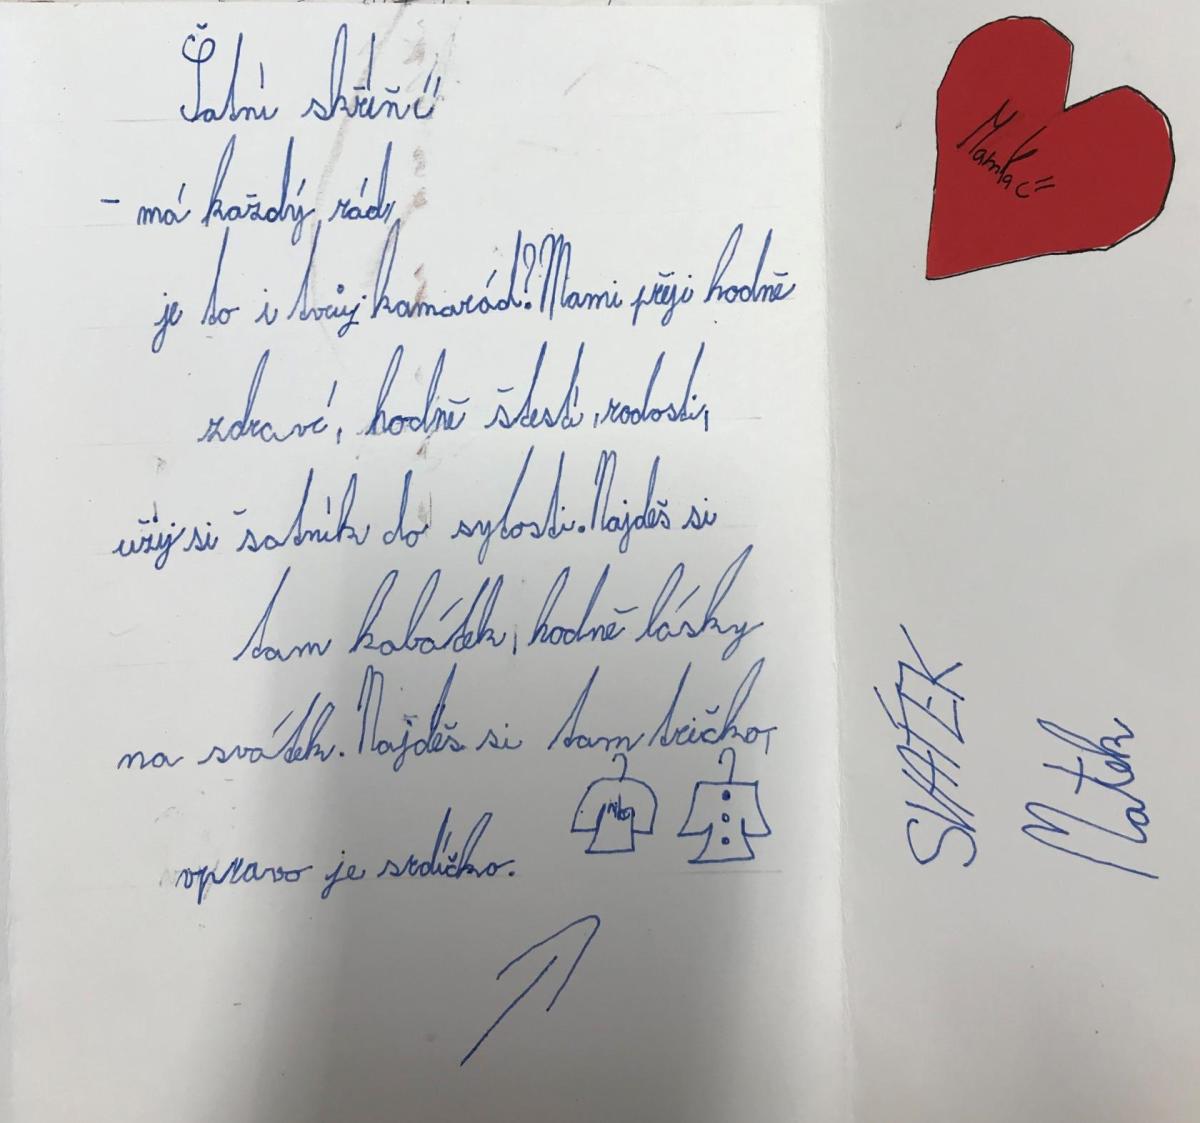 Šatní skříň
- má každý rád,
je to i tvůj kamarád? Mami přeji hodně
zdraví, hodně štestí, rodosti,
užij si šatník do sytosti. Najdeš si
tam kabátek, hodně lásky
na svátek. Najdeš si tam tričko,
vpravo je srdíčko.
SVÁTEK
Matek